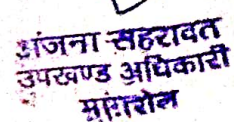 अंजना सहरावत
उपखण्ड अधिकारी
मांगरोल